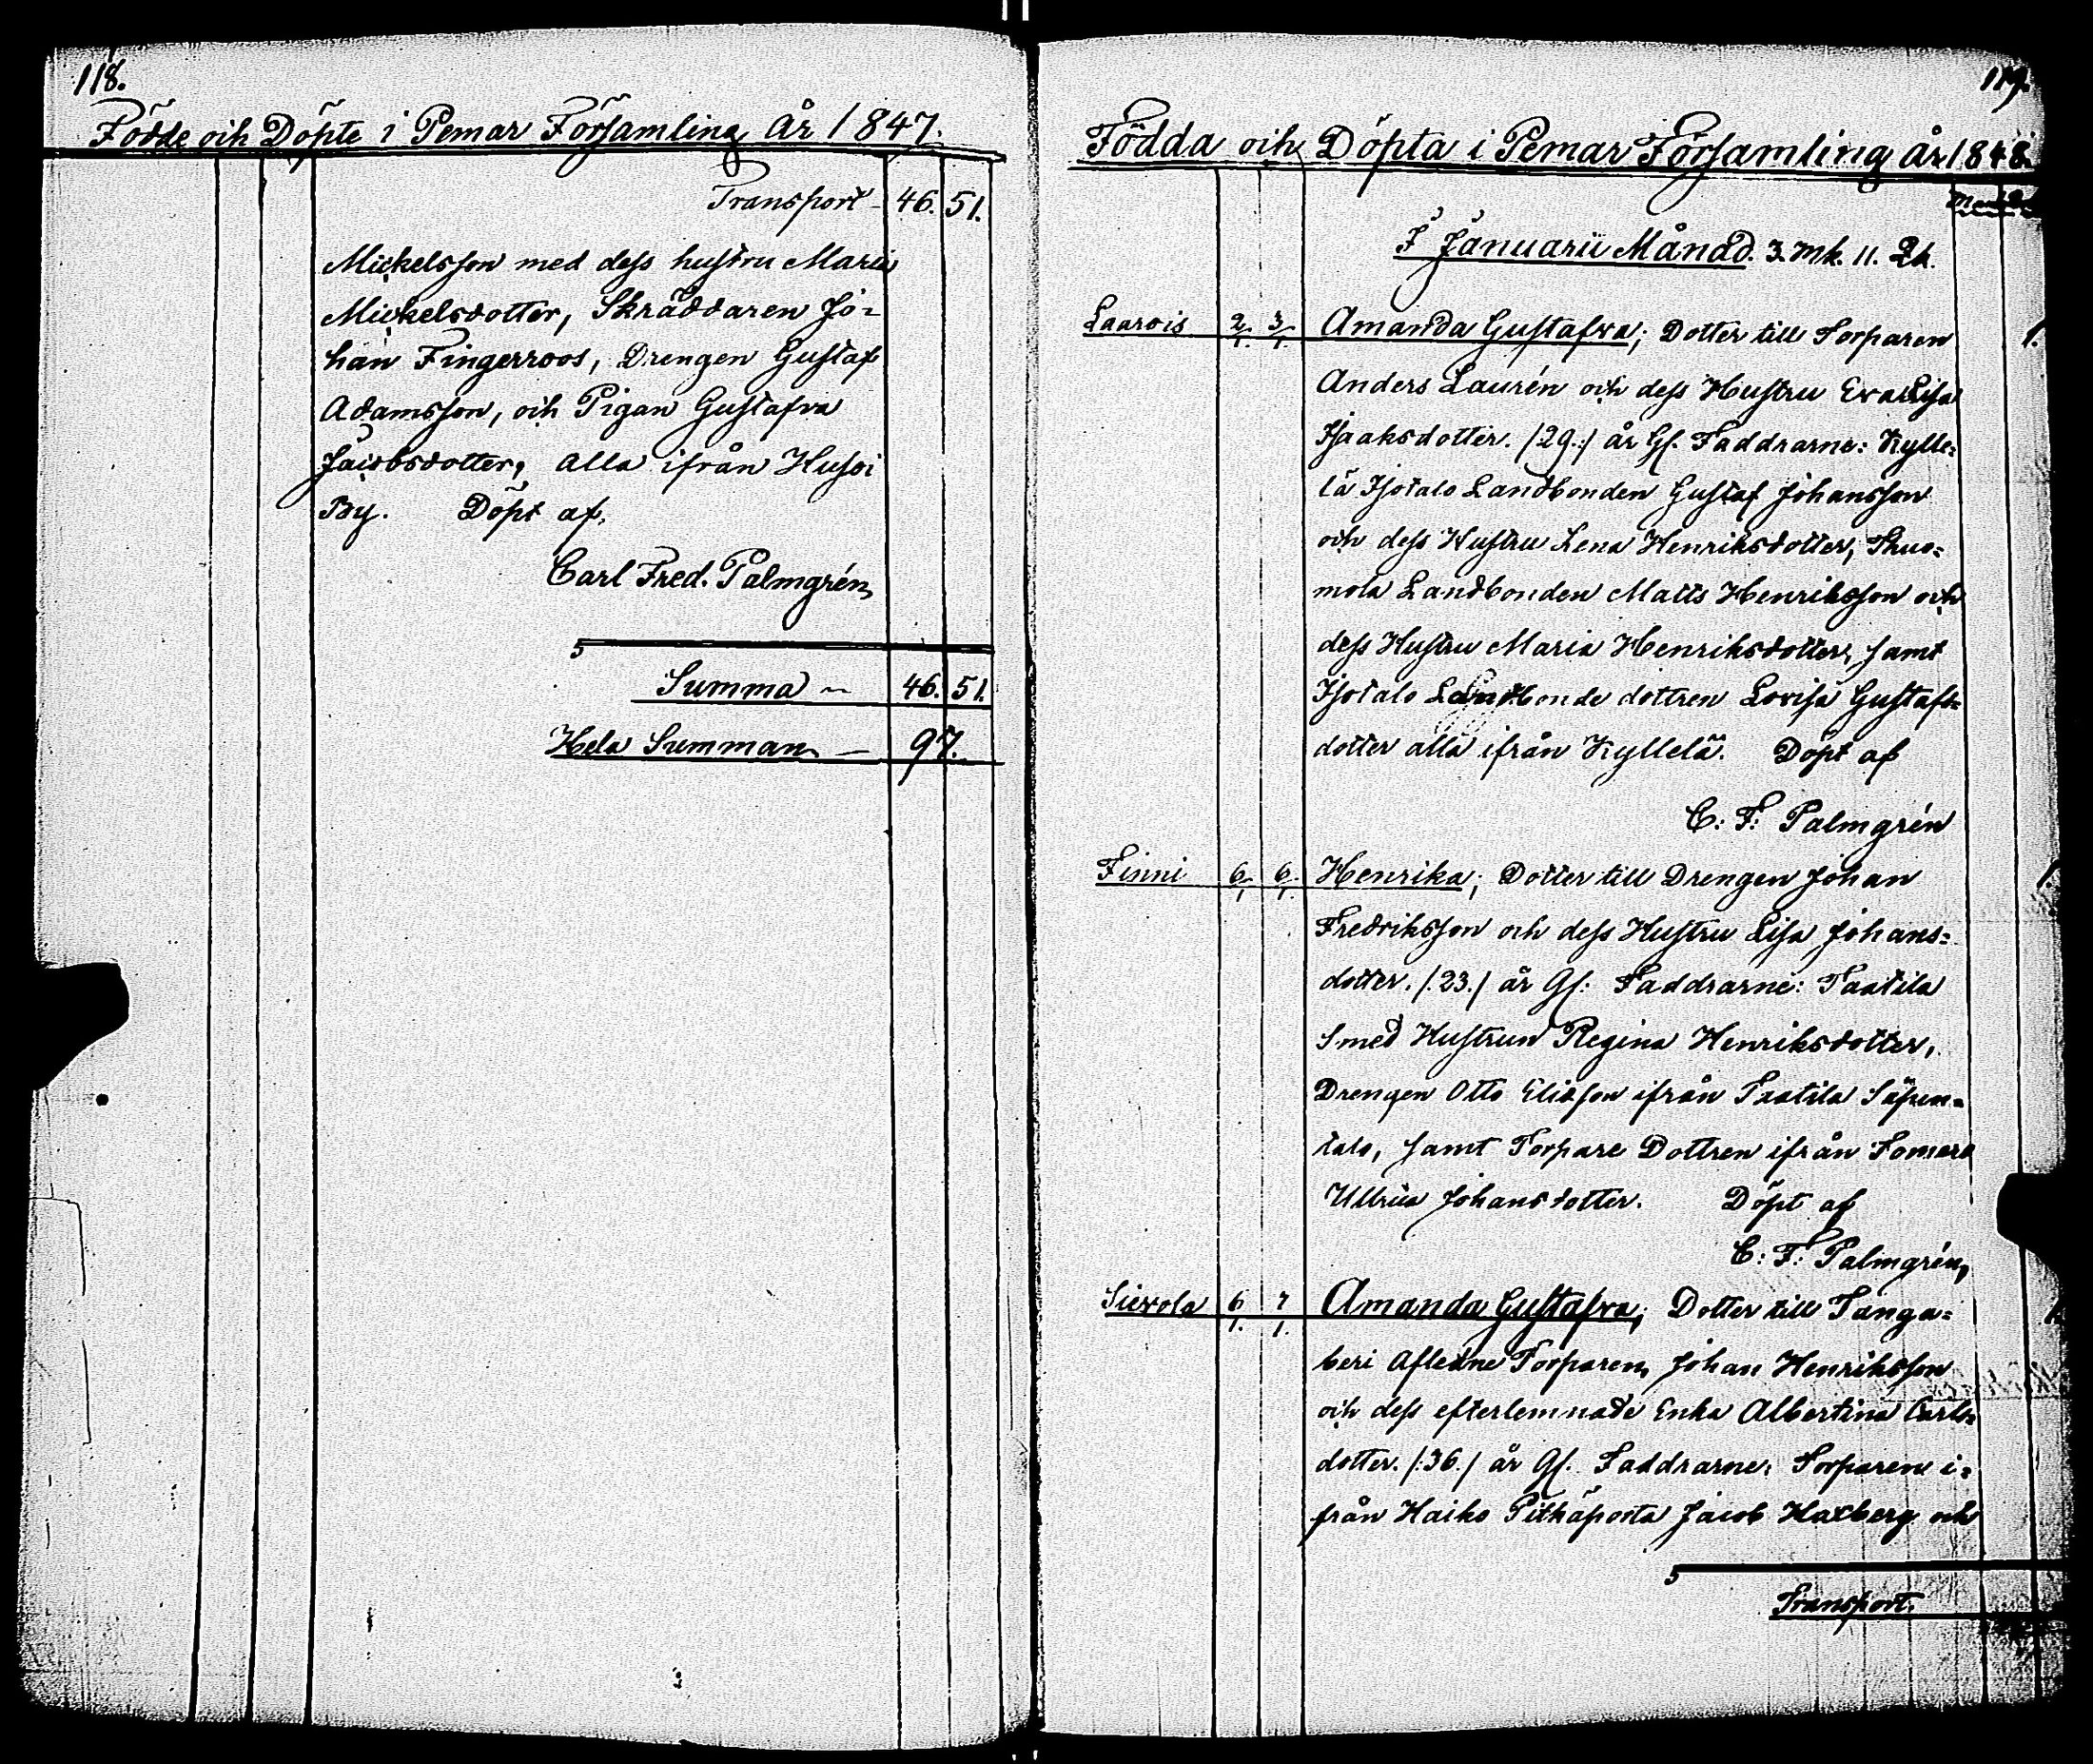 118.
Födde och Döpte i Pemar Församling År 1847.
Transport 46. 51.
Mickelsson med dess hustru Maria
Mickelsdotter, Skräddaren Jo-
han Fingerroos, Drengen Gustaf
Adamsson, och Pigan Gustafva
Jacobsdotter, alla ifrån Hussi
By. Döpt af
Carl Fred. Palmgrén
Summa 46. 51.
Hela Summan 97.
119.
Födda och Döpta i Pemar Församling år 1848.
I Januarii Månad. 3. Mk. 11. Qk.
Laarois 2/1. 3/1. Amanda Gustafva; Dotter till Torparen 1.
Anders Laurén och dess Hustru Eva Lisa
Isaaksdotter. /29./ år Gl. Faddrarne: Kylle-
lä Isotalo Landbonden Gustaf Johansson
och dess Hustru Lena Henriksdotter,
mola Landbonden Matts Henriksson och
dess Hustru Maria Henriksdotter, samt
Isotalo Landbonde dottren Lovisa Gustafs-
dotter alla ifrån Kyllelä. Döpt af
C: F: Palmgrén
Finni 6/1. 6/1. Henrika; Dotter till Drengen Johan 1.
Fredriksson och dess Hustru Lisa Johans-
dotter. /:23./ år Gl: Faddrarne: Taatila
Smed Hustrun Regina Henriksdotter,
Drengen Otto Eliasson ifrån Taatila Säpen-
talo, samt Torpare Dottren ifrån Somero
Ullrica Johansdotter. Döpt af
C: F: Palmgrén
Sievola 6/1. 7/1. Amanda Gustafva; Dotter till Tanga- 1.
beri Afledne Torparen Johan Henriksson
och dess efterlemnade Enka Albertina Carls-
dotter. /:36./ år Gl. Faddrarne: Torparen i-
från Haiko Pitkäporta Jacob Haxberg och
Transport.